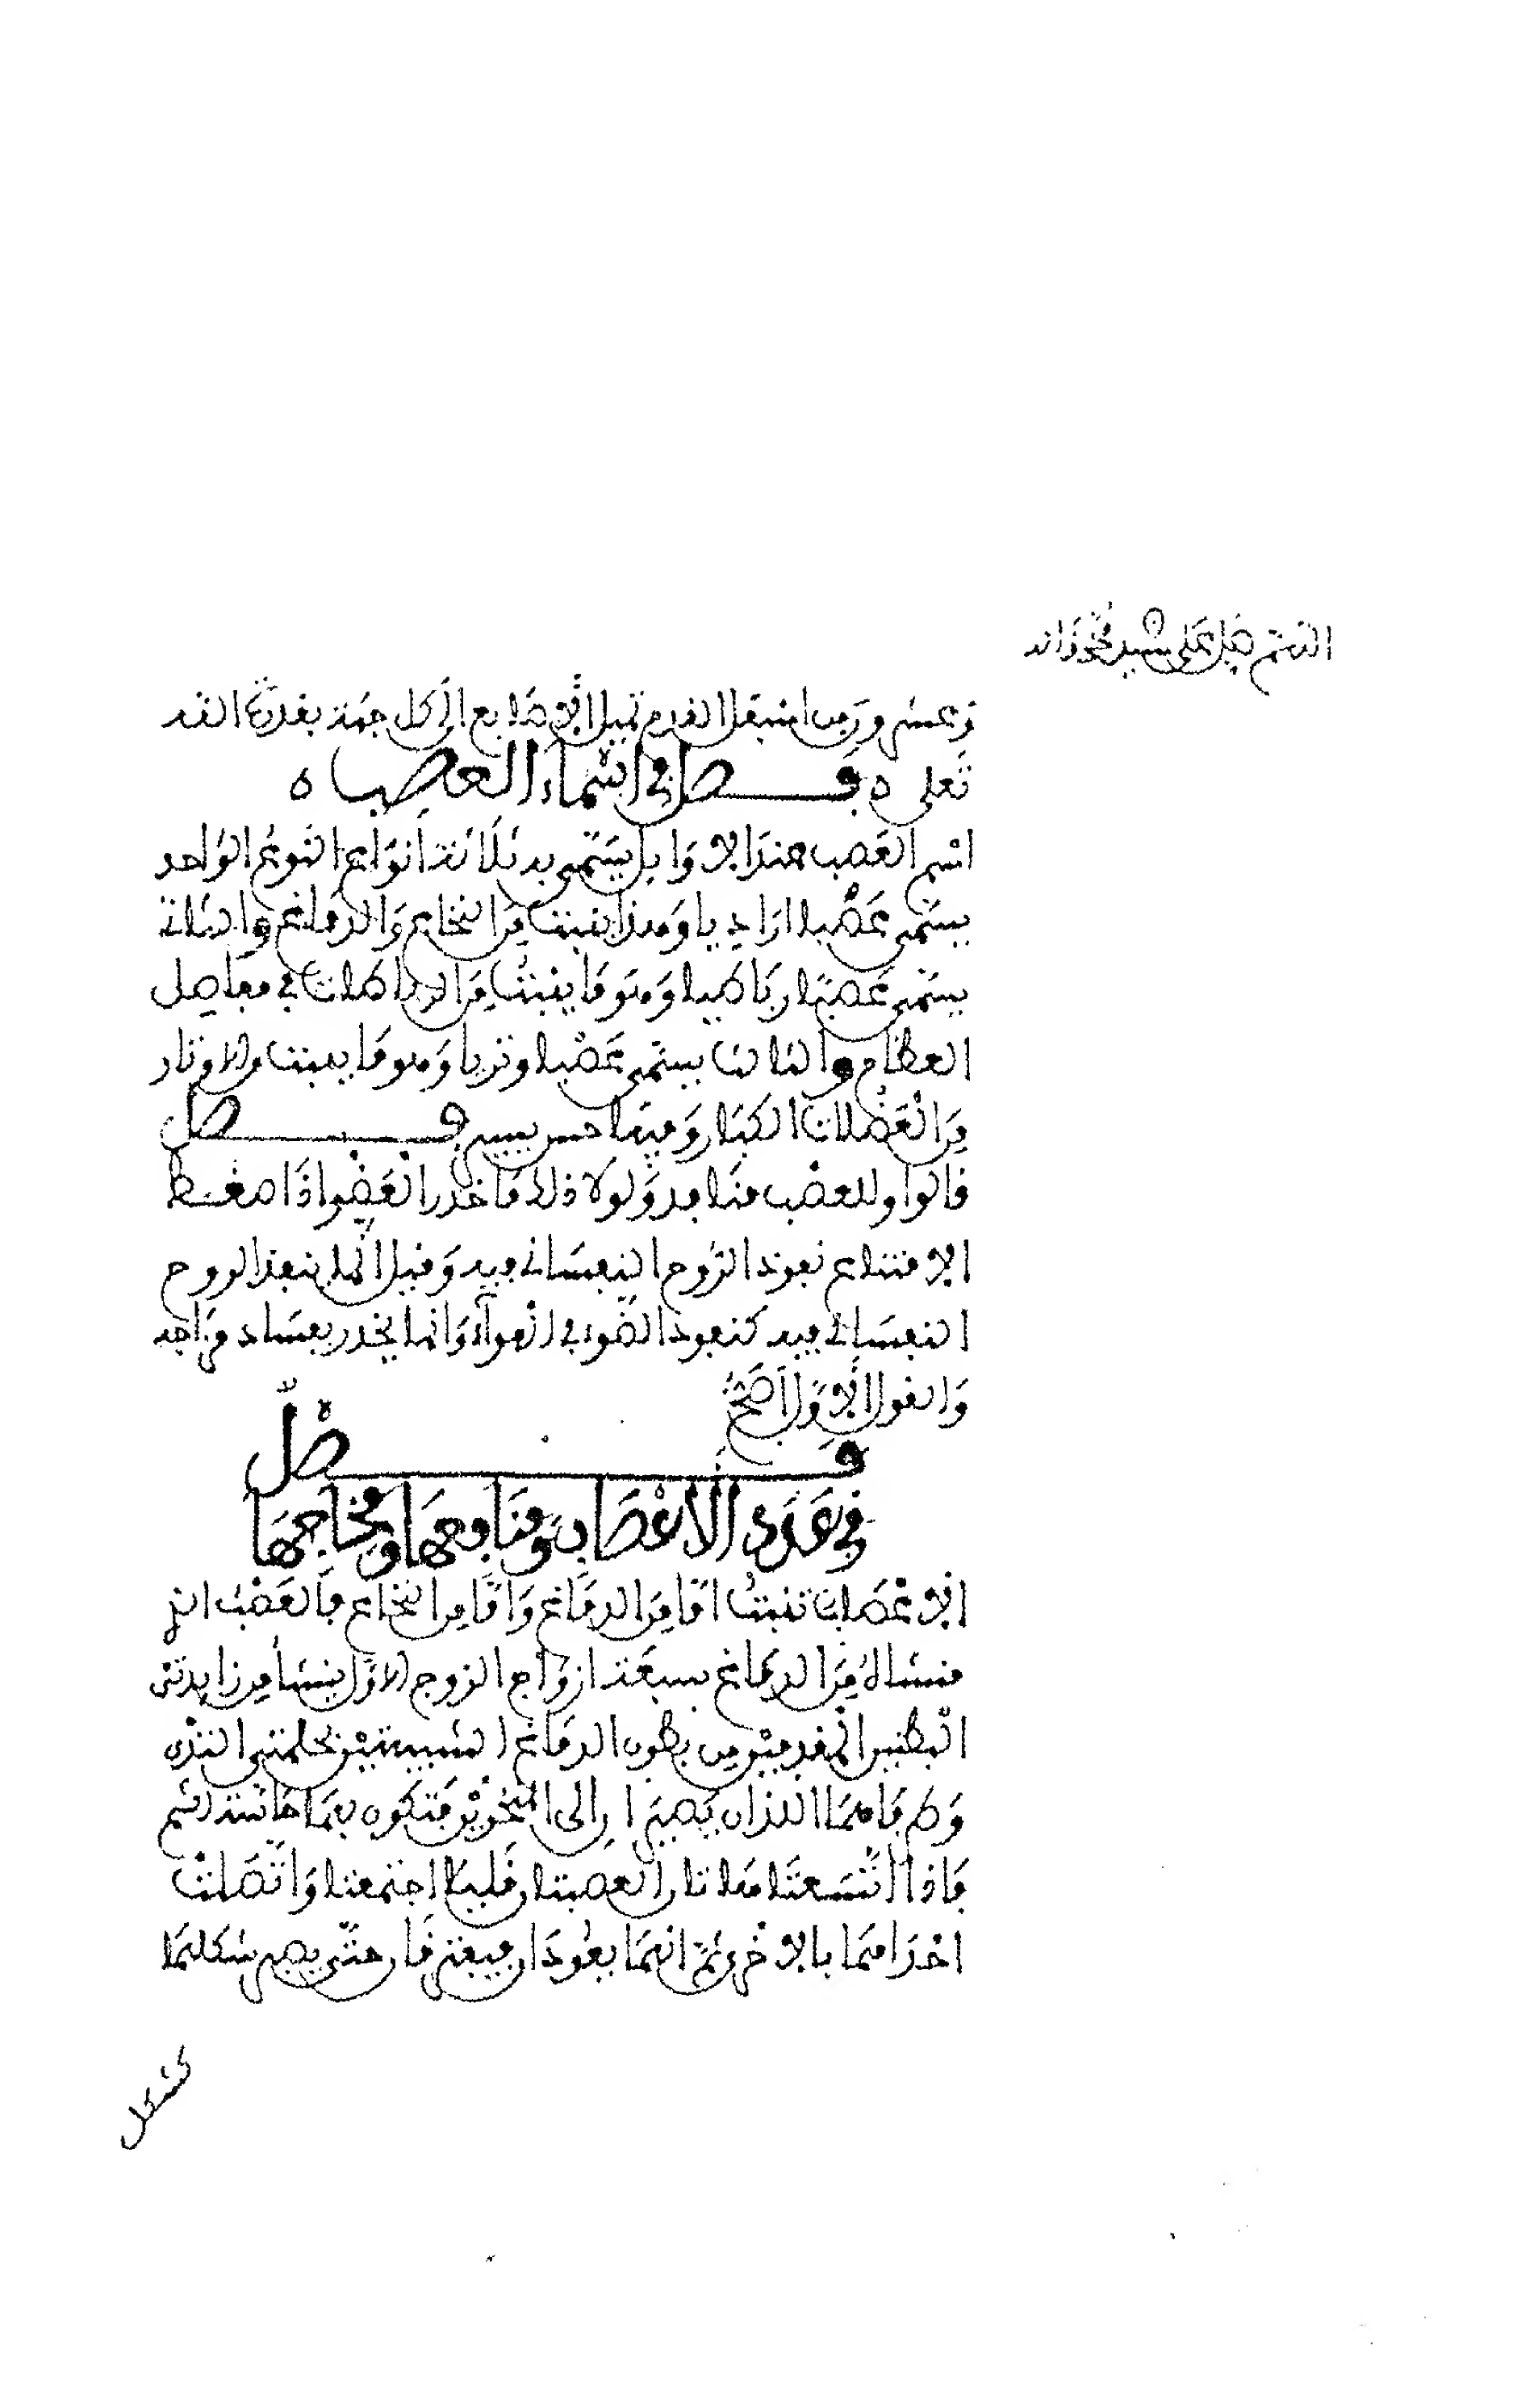 اللهم صل على سيدنا محمد واله
وعشرون من اسفل القدم تميل الاصابع الى كل جهة بقدرة الله
تعلى ه فصل في اسماء العصب ه
اسم العصب عند الاوايل يسمى به ثلاثة انواع النوع الواحد
يسمى عصبا اراديا وهذا ينبت من النخاع والدماغ والثاني
يسمى عصبا رباطيا وهو ما ينبت من الرباطات في مفاصل
العظام والثالث يسمى عصبا وتريا وهو ما ينبت والاوتار
من العضلات الكبار ومنها حس يسير فصل
قالوا وللعصب منافذ ولولا ذلك ما خدر العضو اذا ضغط
لامتناع نفوذ الروح النفساني فيه وقيل انما ينفذ الروح
النفساني فيه كنفوذ الضوء في الهواء وانما يخدر بفساد مزاجه
والقول الاول اصح
فصل
في عدد الاعصاب ومنافعها ومخارجها
الاعصاب تنبت اما من الدماغ واما من النخاع فالعصب الذي
منشاه من الدماغ سبعة ازواج الزوج الاول ينشأ من زايدتى
البطنين المقدمين من بطون الدماغ الشبيهتين بحلمتي الثدي
وطرفاهما اللذان يصيرا الى المنخرين فتكون بهما حاسة الشم
فاذا اتسعتا هاتان العصبتان قليلا اجتمعتا واتصلت
احداهما بالاخرى ثم انهما يعودان فيفترقان حتى يصير شكلهما
كشكل